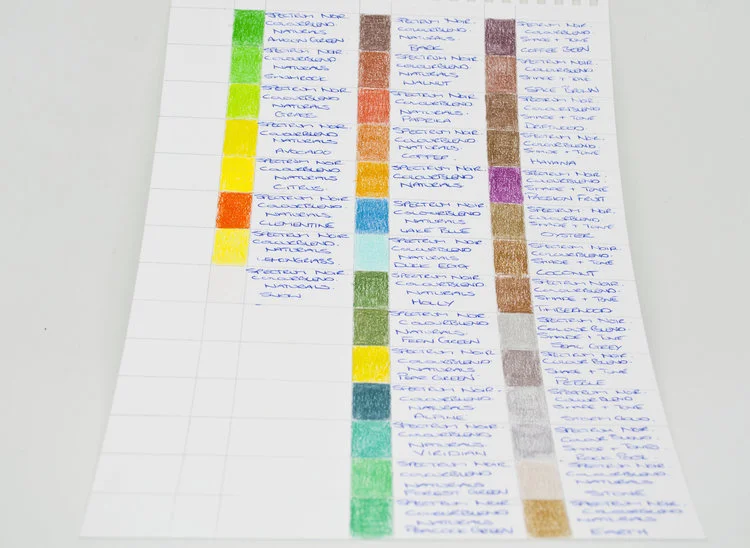 SPECTRUM NOIR
COLOURBLEND
NATURALS
AVALON GREEN
SPECTRUM NOIR
COLOURBLEND
NATURALS
SHAMROCK
SPECTRUM NOIR
COLOURBLEND
NATURALS
GRASS
SPECTRUM NOIR
COLOURBLEND
NATURALS
AVOCADO
SPECTRUM NOIR
COLOURBLEND
NATURALS
CITRUS
SPECTRUM NOIR
COLOURBLEND
NATURALS
CLEMENTINE
SPECTRUM NOIR
COLOURBLEND
NATURALS
LEMONGRASS
SPECTRUM NOIR
COLOURBLEND
NATURALS
SNOW
SPECTRUM NOIR
COLOURBLEND
NATURALS
BARK
SPECTRUM NOIR
COLOURBLEND
NATURALS
WALNUT
SPECTRUM NOIR
COLOURBLEND
NATURALS
PAPRIKA
SPECTRUM NOIR
COLOURBLEND
NATURALS
COPPER
SPECTRUM NOIR
COLOURBLEND
NATURALS
SPECTRUM NOIR
COLOURBLEND
NATURALS
LAKE BLUE
SPECTRUM NOIR
COLOURBLEND
NATURALS
DUCK EGG
SPECTRUM NOIR
COLOURBLEND
NATURALS
HOLLY
SPECTRUM NOIR
COLOURBLEND
NATURALS
FERN GREEN
SPECTRUM NOIR
COLOURBLEND
NATURALS
PEAR GREEN
SPECTRUM NOIR
COLOURBLEND
NATURALS
ALPINE
SPECTRUM NOIR
COLOURBLEND
NATURALS
VIRIDIAN
SPECTRUM NOIR
COLOURBLEND
NATURALS
FOREST GREEN
SPECTRUM NOIR
COLOURBLEND
NATURALS
PEACOCK GREEN
SPECTRUM NOIR
COLOURBLEND
SHADE + TONE
COFFEE BEAN
SPECTRUM NOIR
COLOURBLEND
SHADE + TONE
SPICE BROWN
SPECTRUM NOIR
COLOURBLEND
SHADE + TONE
DRIFTWOOD
SPECTRUM NOIR
COLOURBLEND
SHADE + TONE
HAVANA
SPECTRUM NOIR
COLOURBLEND
SHADE + TONE
PASSION FRUIT
SPECTRUM NOIR
COLOURBLEND
SHADE + TONE
OYSTER
SPECTRUM NOIR
COLOURBLEND
SHADE + TONE
COCONUT
SPECTRUM NOIR
COLOURBLEND
SHADE + TONE
TIMBERWOOD
SPECTRUM NOIR
COLOURBLEND
SHADE + TONE
SEAL GREY
SPECTRUM NOIR
COLOURBLEND
SHADE + TONE
PEBBLE
SPECTRUM NOIR
COLOURBLEND
SHADE + TONE
STORM CLOUD
SPECTRUM NOIR
COLOURBLEND
SHADE + TONE
ROCK POOL
SPECTRUM NOIR
COLOURBLEND
NATURALS
STONE
SPECTRUM NOIR
COLOURBLEND
NATURALS
EARTH